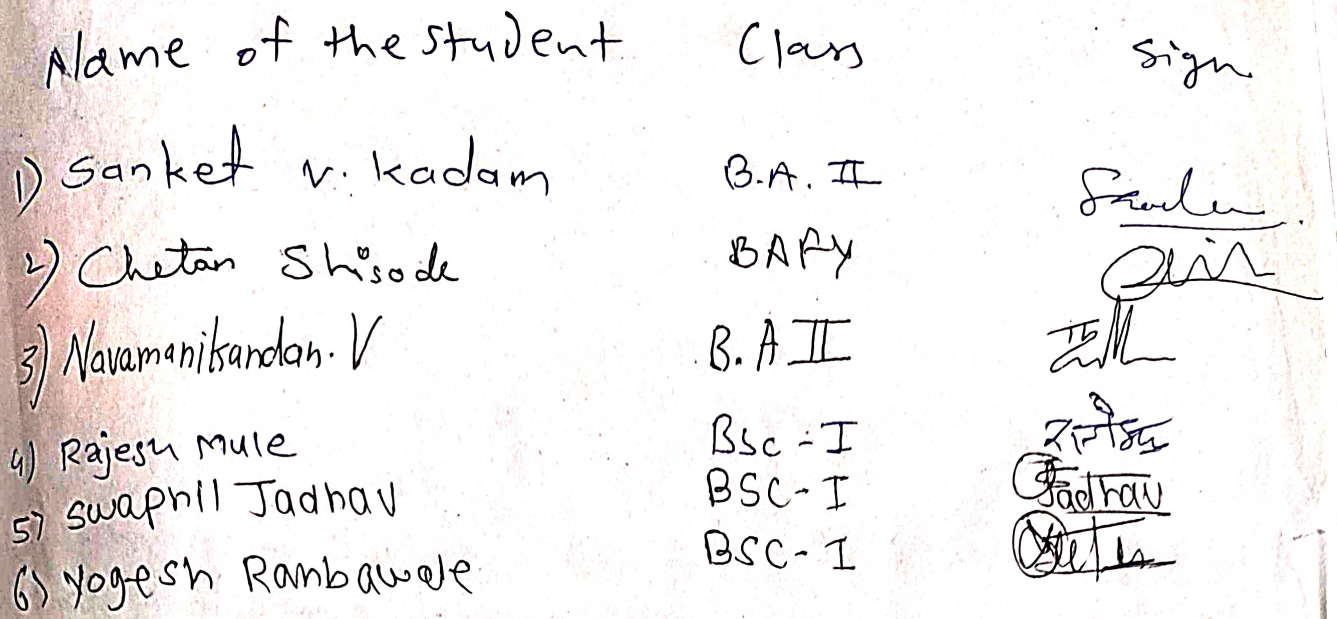 Name of the Student Class Sign
1) Sanket v. kadam B.A. II
2) Chetan Shisode BAFY
3) Navamanikandan. V B.A II
4) Rajesh Mule Bsc - I राजेश
5) Swapnil Jadhav BSC - I Jadhav
6) Yogesh Ranbawale BSC - I